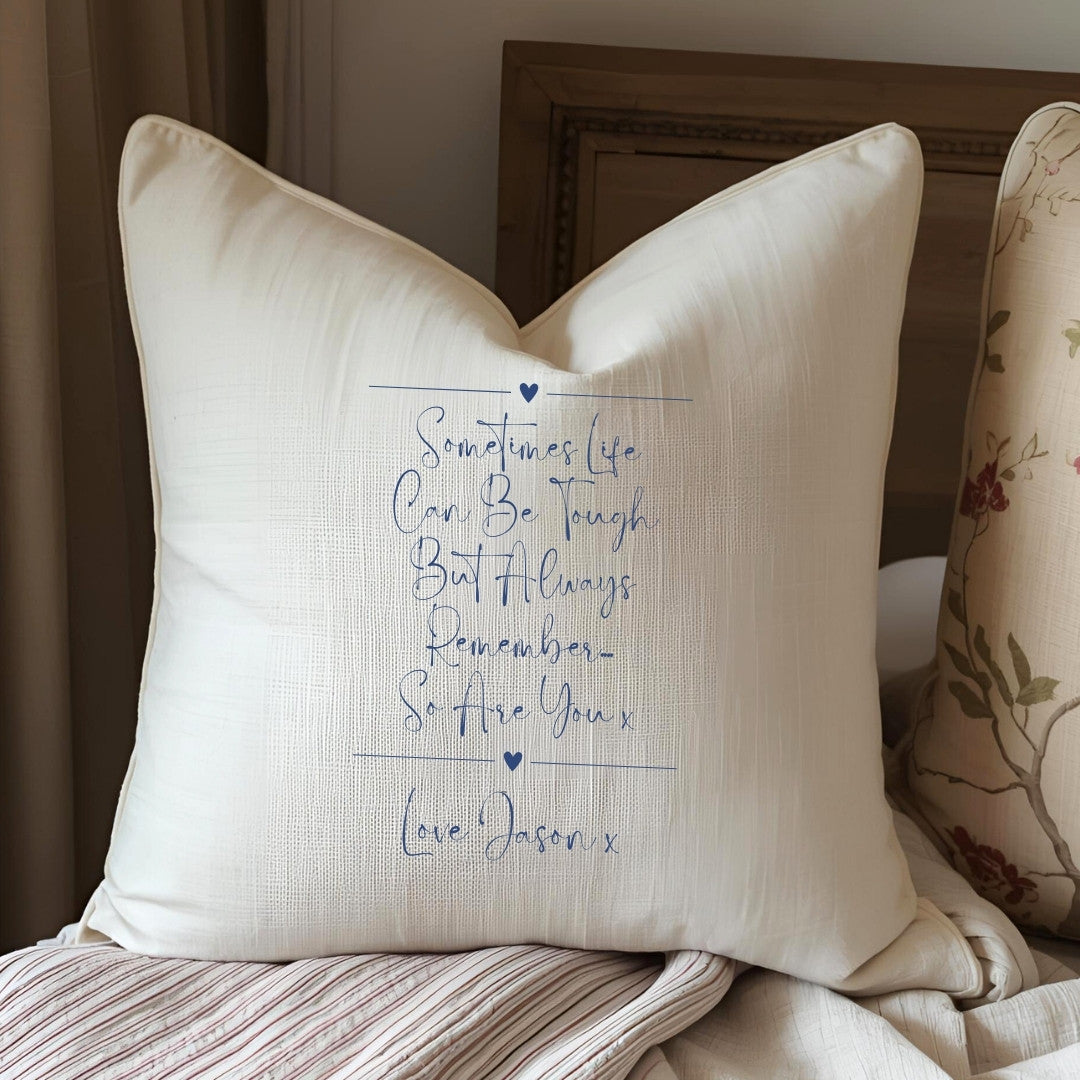 Sometimes Life
Can Be Tough
But Always
Remember-
So Are You x
Love Jason x